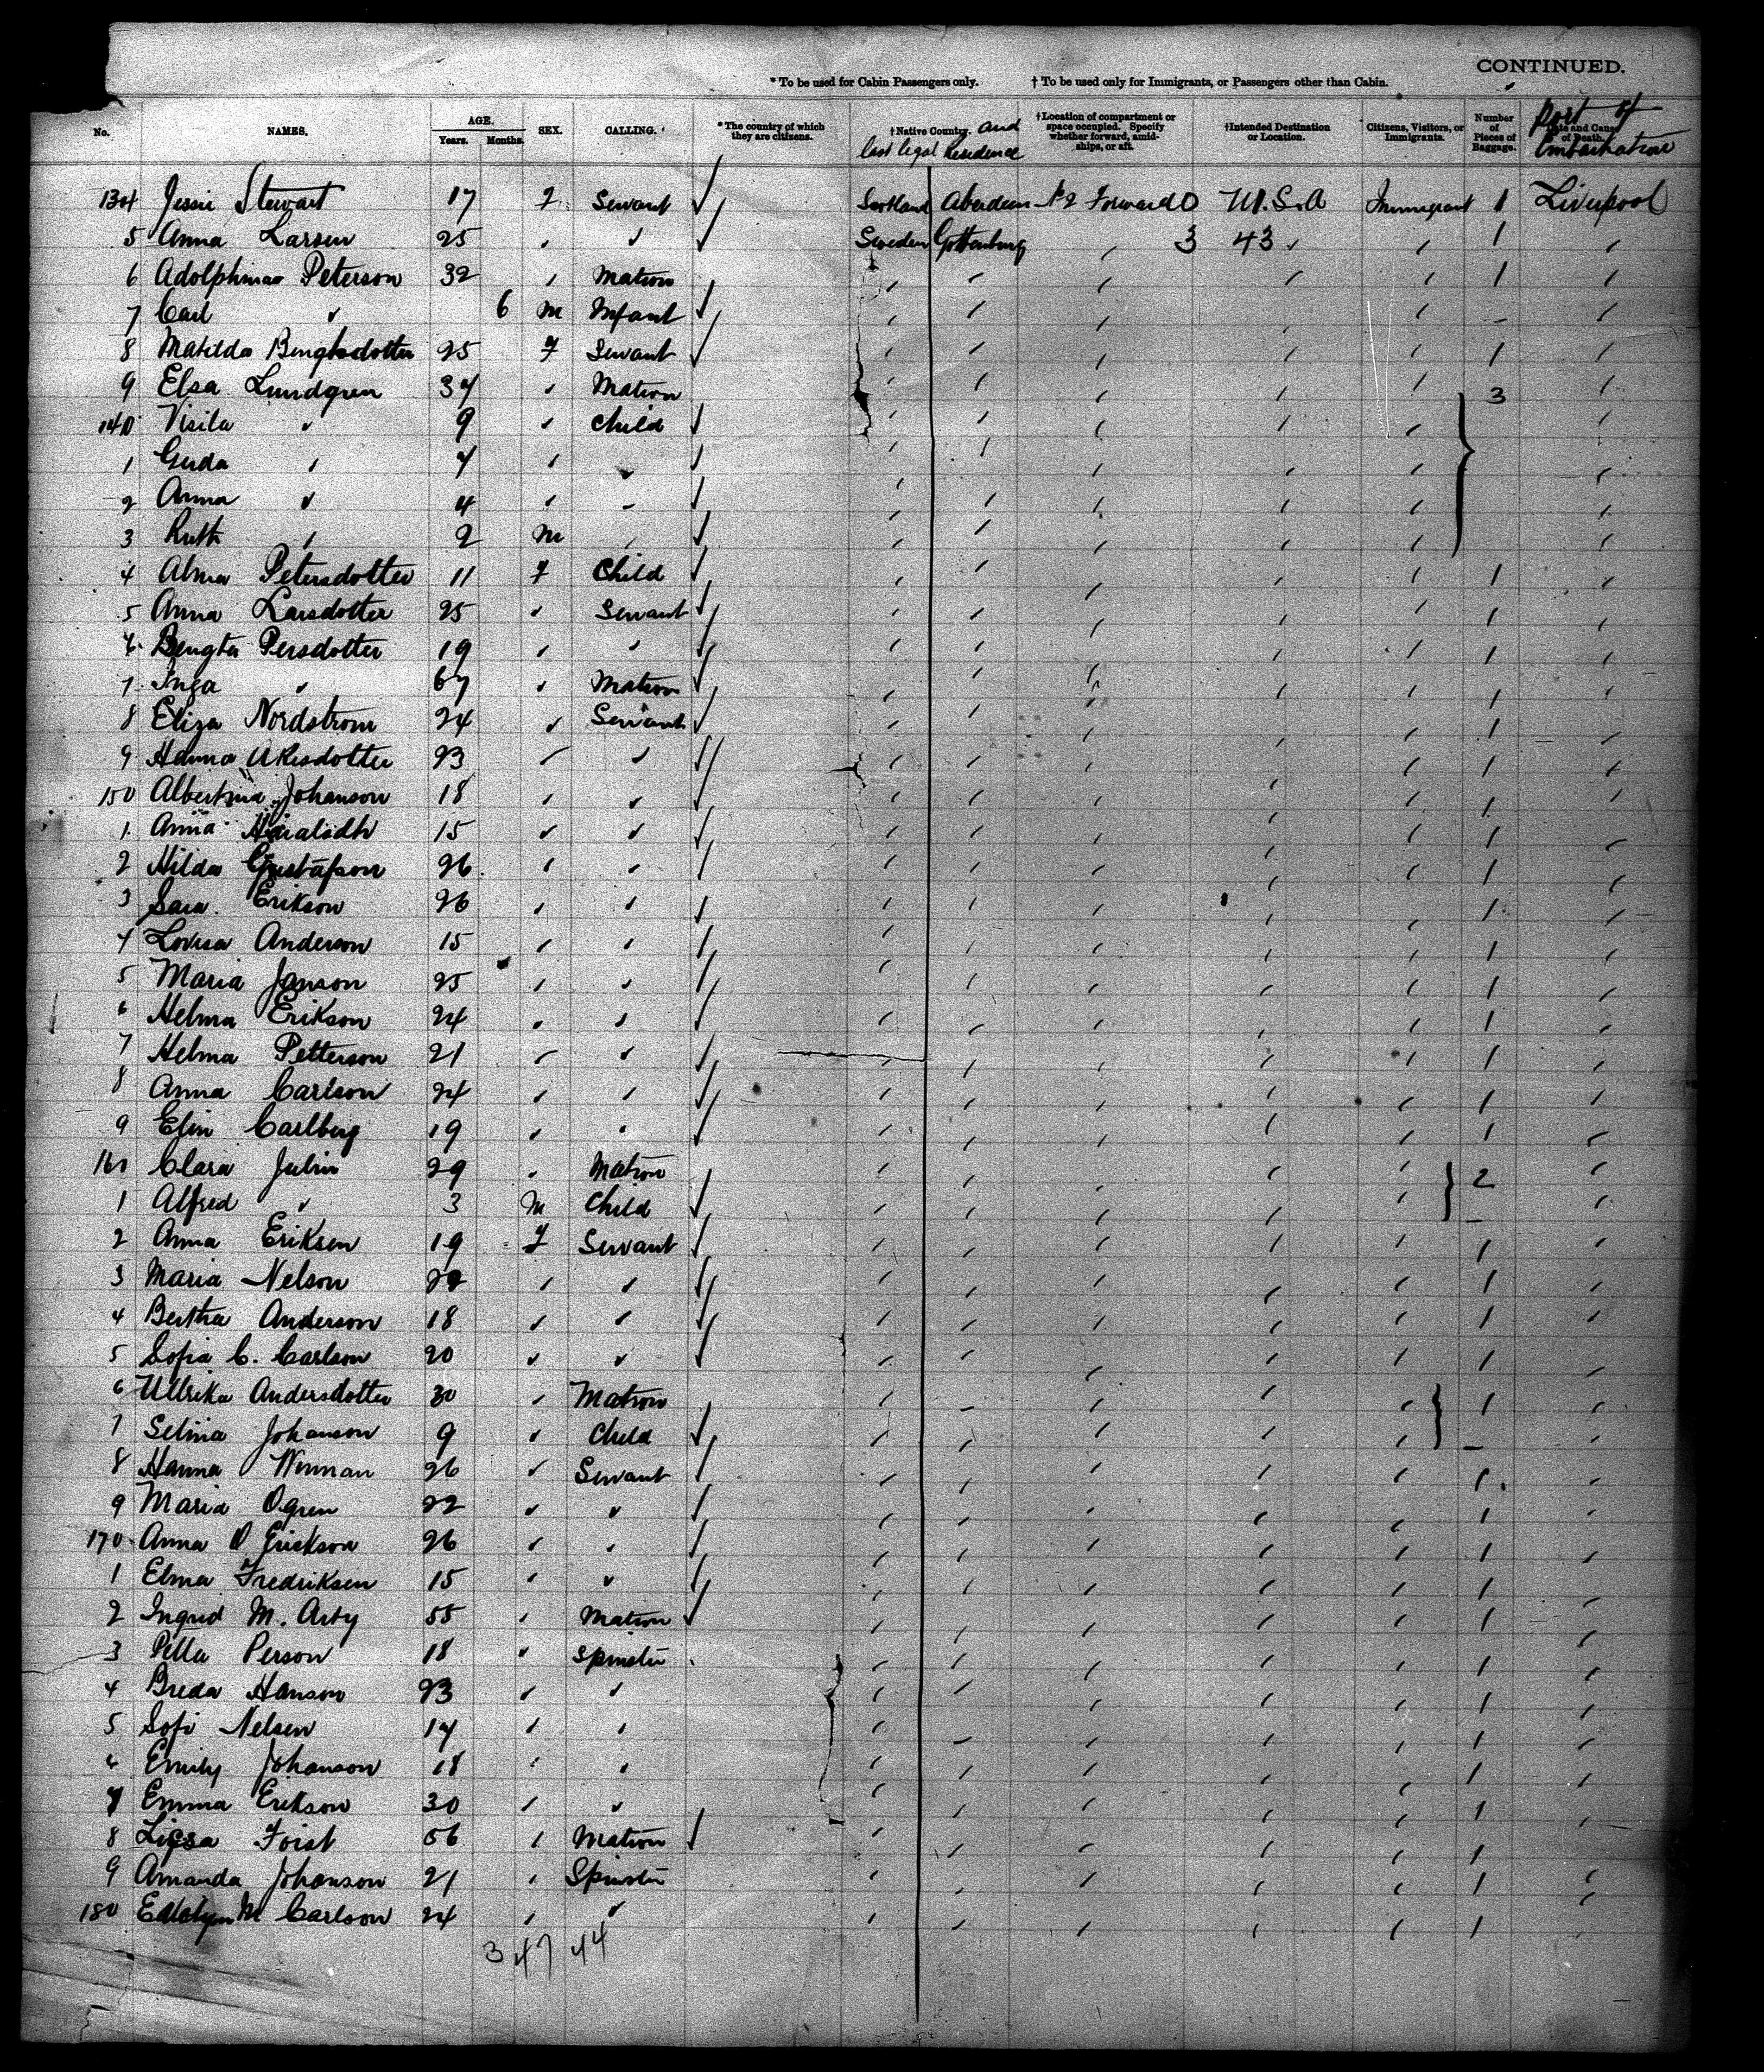 CONTINUED.
* To be used for Cabin Passengers only. † To be used only for Immigrants, or Passengers other than Cabin.
No. NAMES. AGE. Years. Months. SEX. CALLING. *The country of which they are citizens. †Native Country and last legal Residence †Location of compartment or space occupied. Specify whether forward, amidships, or aft. †Intended Destination or Location. Citizens, Visitors, or Immigrants. Number of Pieces of Baggage. Date and Cause of Death. Port of Embarkation
134 Jessie Stewart 17 F Servant Scotland Aberdeen No 2 Forward 0 U.S.A Immigrant 1 Liverpool
5 Anna Larsen 25 " " Sweden Gottenburg " 3 43 " " 1 "
6 Adolphina Peterson 32 " Matron " " " " " 1 "
7 Carl " 6 M Infant " " " " " - "
8 Matilda Bengtsdotter 25 F Servant " " " " " 1 "
9 Elsa Lundgren 37 " Matron " " " " " 3 "
140 Visila " 9 " Child " " " " " "
1 Gerda " 7 " " " " " " " "
2 Anna " 4 " " " " " " " "
3 Ruth " 2 M " " " " " " "
4 Alma Petersdotter 11 F Child " " " " " 1 "
5 Anna Larsdotter 25 " Servant " " " " " 1 "
6 Bengta Persdotter 19 " " " " " " " 1 "
7 Inga " 67 " Matron " " " " " 1 "
8 Eliza Nordstrom 24 " Servant " " " " " 1 "
9 Hanna Akesdotter 23 " " " " " " " 1 "
150 Albertina Johanson 18 " " " " " " " 1 "
1 Anna 15 " " " " " " " 1 "
2 Hilda Gustafson 26 " " " " " " " 1 "
3 Sara Erikson 26 " " " " " " " 1 "
4 Lovisa Anderson 15 " " " " " " " 1 "
5 Maria Janson 25 " " " " " " " 1 "
6 Helma Erikson 24 " " " " " " " 1 "
7 Helma Petterson 21 " " " " " " " 1 "
8 Anna Carlson 24 " " " " " " " 1 "
9 Elin Carlberg 19 " " " " " " " 1 "
160 Clara Julin 29 " Matron " " " " " 2 "
1 Alfred " 3 M Child " " " " " - "
2 Anna Eriksen 19 F Servant " " " " " 1 "
3 Maria Nelson 22 " " " " " " " 1 "
4 Bertha Anderson 18 " " " " " " " 1 "
5 Sofia C. Carlson 20 " " " " " " " 1 "
6 Ullrika Andersdotter 30 " Matron " " " " " 1 "
7 Selma Johanson 9 " Child " " " " " - "
8 Hanna Wenman 26 " Servant " " " " " 1 "
9 Maria Ogren 22 " " " " " " " 1 "
170 Anna O Erickson 26 " " " " " " " 1 "
1 Elma Fredriksen 15 " " " " " " " 1 "
2 Ingrid M. Arty 55 " Matron " " " " " 1 "
3 Pella Person 18 " Spinster " " " " " 1 "
4 Breda Hanson 23 " " " " " " " 1 "
5 Sofi Nelsen 17 " " " " " " " 1 "
6 Emily Johanson 18 " " " " " " " 1 "
7 Emma Erikson 30 " " " " " " " 1 "
8 Lissa Foist 56 " Matron " " " " " 1 "
9 Amanda Johanson 21 " Spinster " " " " " 1 "
180 M Carlson 24 " " " " " " " 1 "
3 47 44